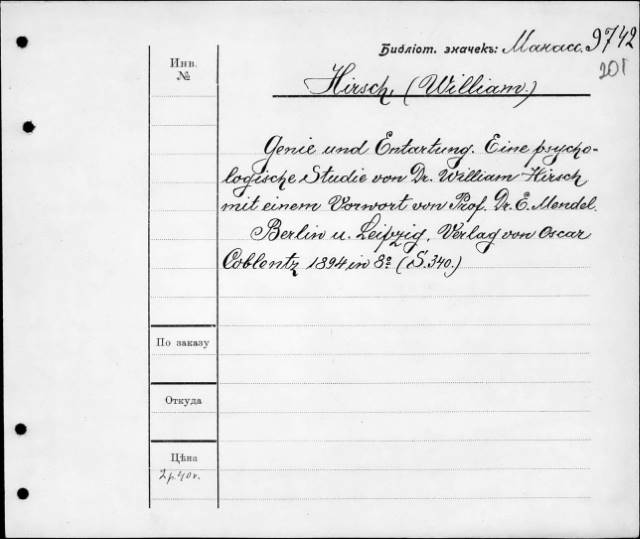 Библіот. значекъ: Манасс. 9742
201
Инв.
№
Hirsch, (William.)
Genie und Entartung. Eine psycho-
logische Studie von Dr. William Hirsch
mit einem Vorwort von Prof. Dr. E. Mendel.
Berlin u. Leipzig, Verlag von Oscar
Coblentz 1894 in 8º (S. 340.)
По заказу
Откуда
Цѣна
2р.40к.